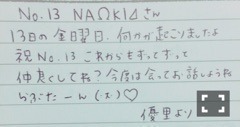 No.13 NAΩKIAさん
13日の金曜日、何かが起こりましたよ
祝 No.13 これからもずっとずっと
仲良くしてね？今度は会ってお話しようね
らぶたーん(:x)♡
優里より